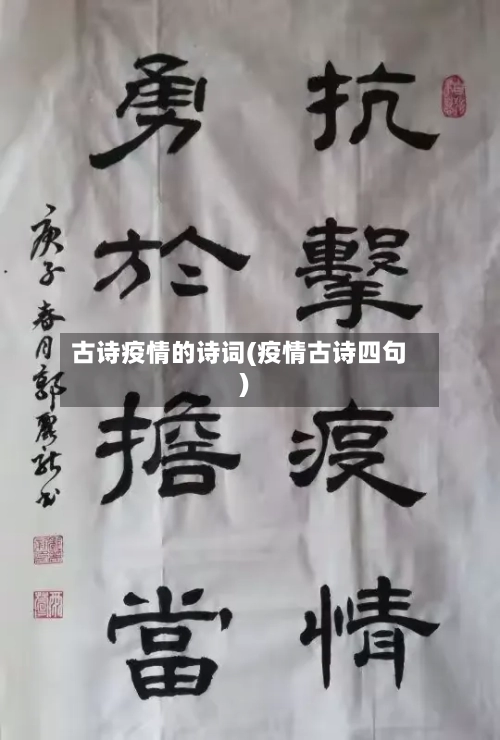 抗擊疫情
勇於擔當
庚子春月郭麗敏书
古诗疫情的诗词(疫情古诗四句
)